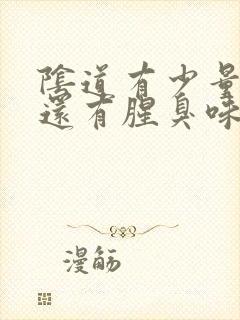 陰道有少量
還有腥臭味
漫觞